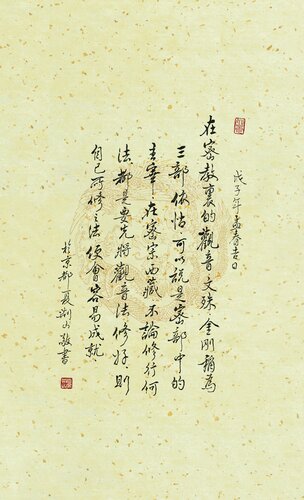 戊子年孟春吉日
在密教裏的觀音文殊金剛稱為
三部依怙可以說是密部中的
主宰在密宗西藏不論修行何
法都是要先將觀音法修好則
自己所修之法便會容易成就
於京都夏荆山敬書